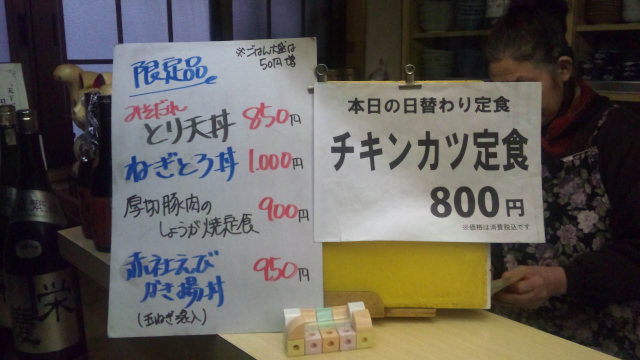 限定品
※ごはん大盛は
50円増
みそだれ
とり天丼 850円
ねぎとろ丼 1.000円
厚切豚肉の
しょうが焼定食 900円
赤社えび
かき揚丼 950円
(玉ねぎ入)
本日の日替わり定食
チキンカツ定食
800円
※価格は消費税込です
栄